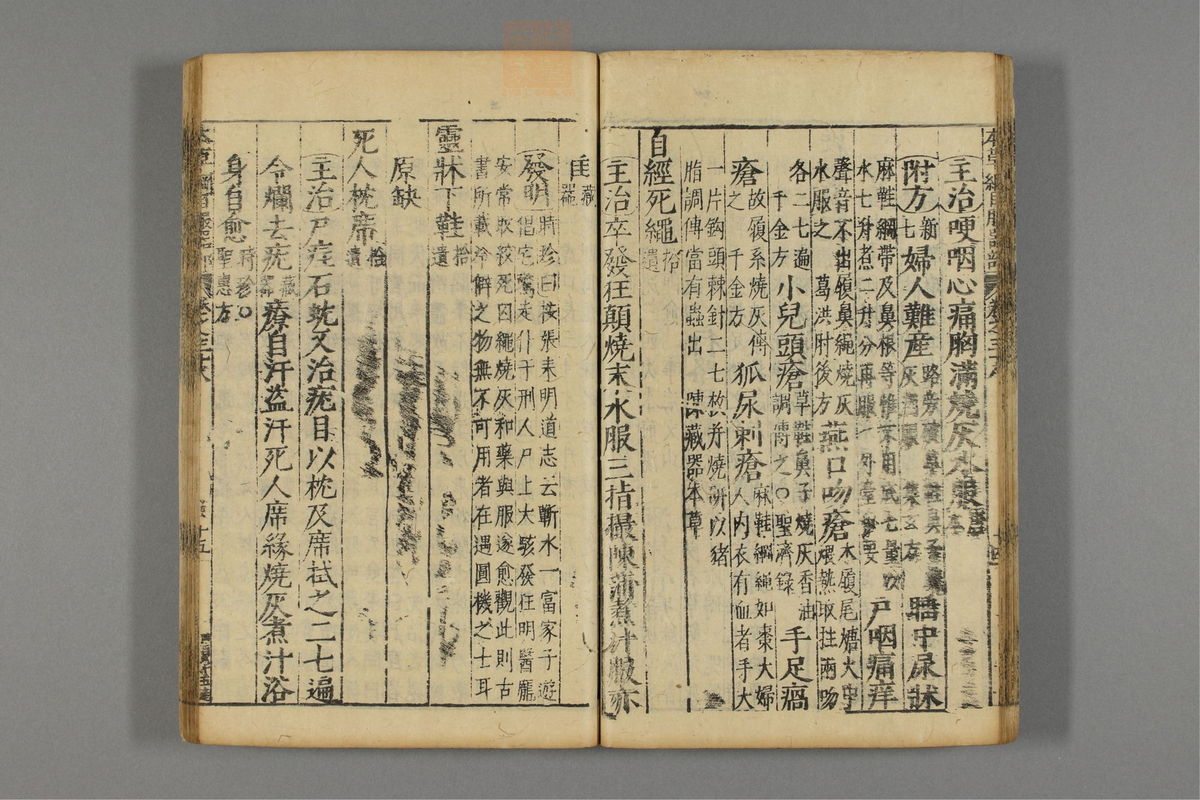 主治哽咽心痛胸滿燒灰水服
附方新七婦人難産路旁破草鞋鼻子燒灰酒服 集玄方 睡中尿牀
麻鞋綱帶及鼻根等惟不用底七量以水七升煮二升分再服 外臺秘要 尸咽痛痒
聲音不出履鼻繩燒灰水服之 葛洪肘後方 燕口吻瘡木履尾煻火中煨熱取拄兩吻
各二七遍 千金方 小兒頭瘡草鞋鼻子燒灰香油調傅之〇聖濟錄 手足㾧
瘡故履系燒灰傅之 千金方 狐尿刺瘡麻鞋綱繩如棗大婦人内衣有血者手大
一片鈎頭棘針二七枚并燒研以豬脂調傅當有蟲出 陳藏器本草
自經死繩拾遺
主治卒發狂顛燒末水服三指撮陳蒲煮汁服亦
佳藏器
發明時珍曰按張耒明道志云蘄水一富家子遊倡宅驚走仆于刑人尸上大駭發狂明醫龐
安常取絞死囚繩燒灰和藥與服遂愈觀此則古書所載冷僻之物無不可用者在遇圓機之士耳
靈牀下鞋拾遺
原缺
死人枕席拾遺
主治尸疰石蚘又治疣目以枕及席拭之二七遍
令爛去疣藏器療自汗盗汗死人席緣燒灰煮汁浴
身自愈時珍〇聖惠方